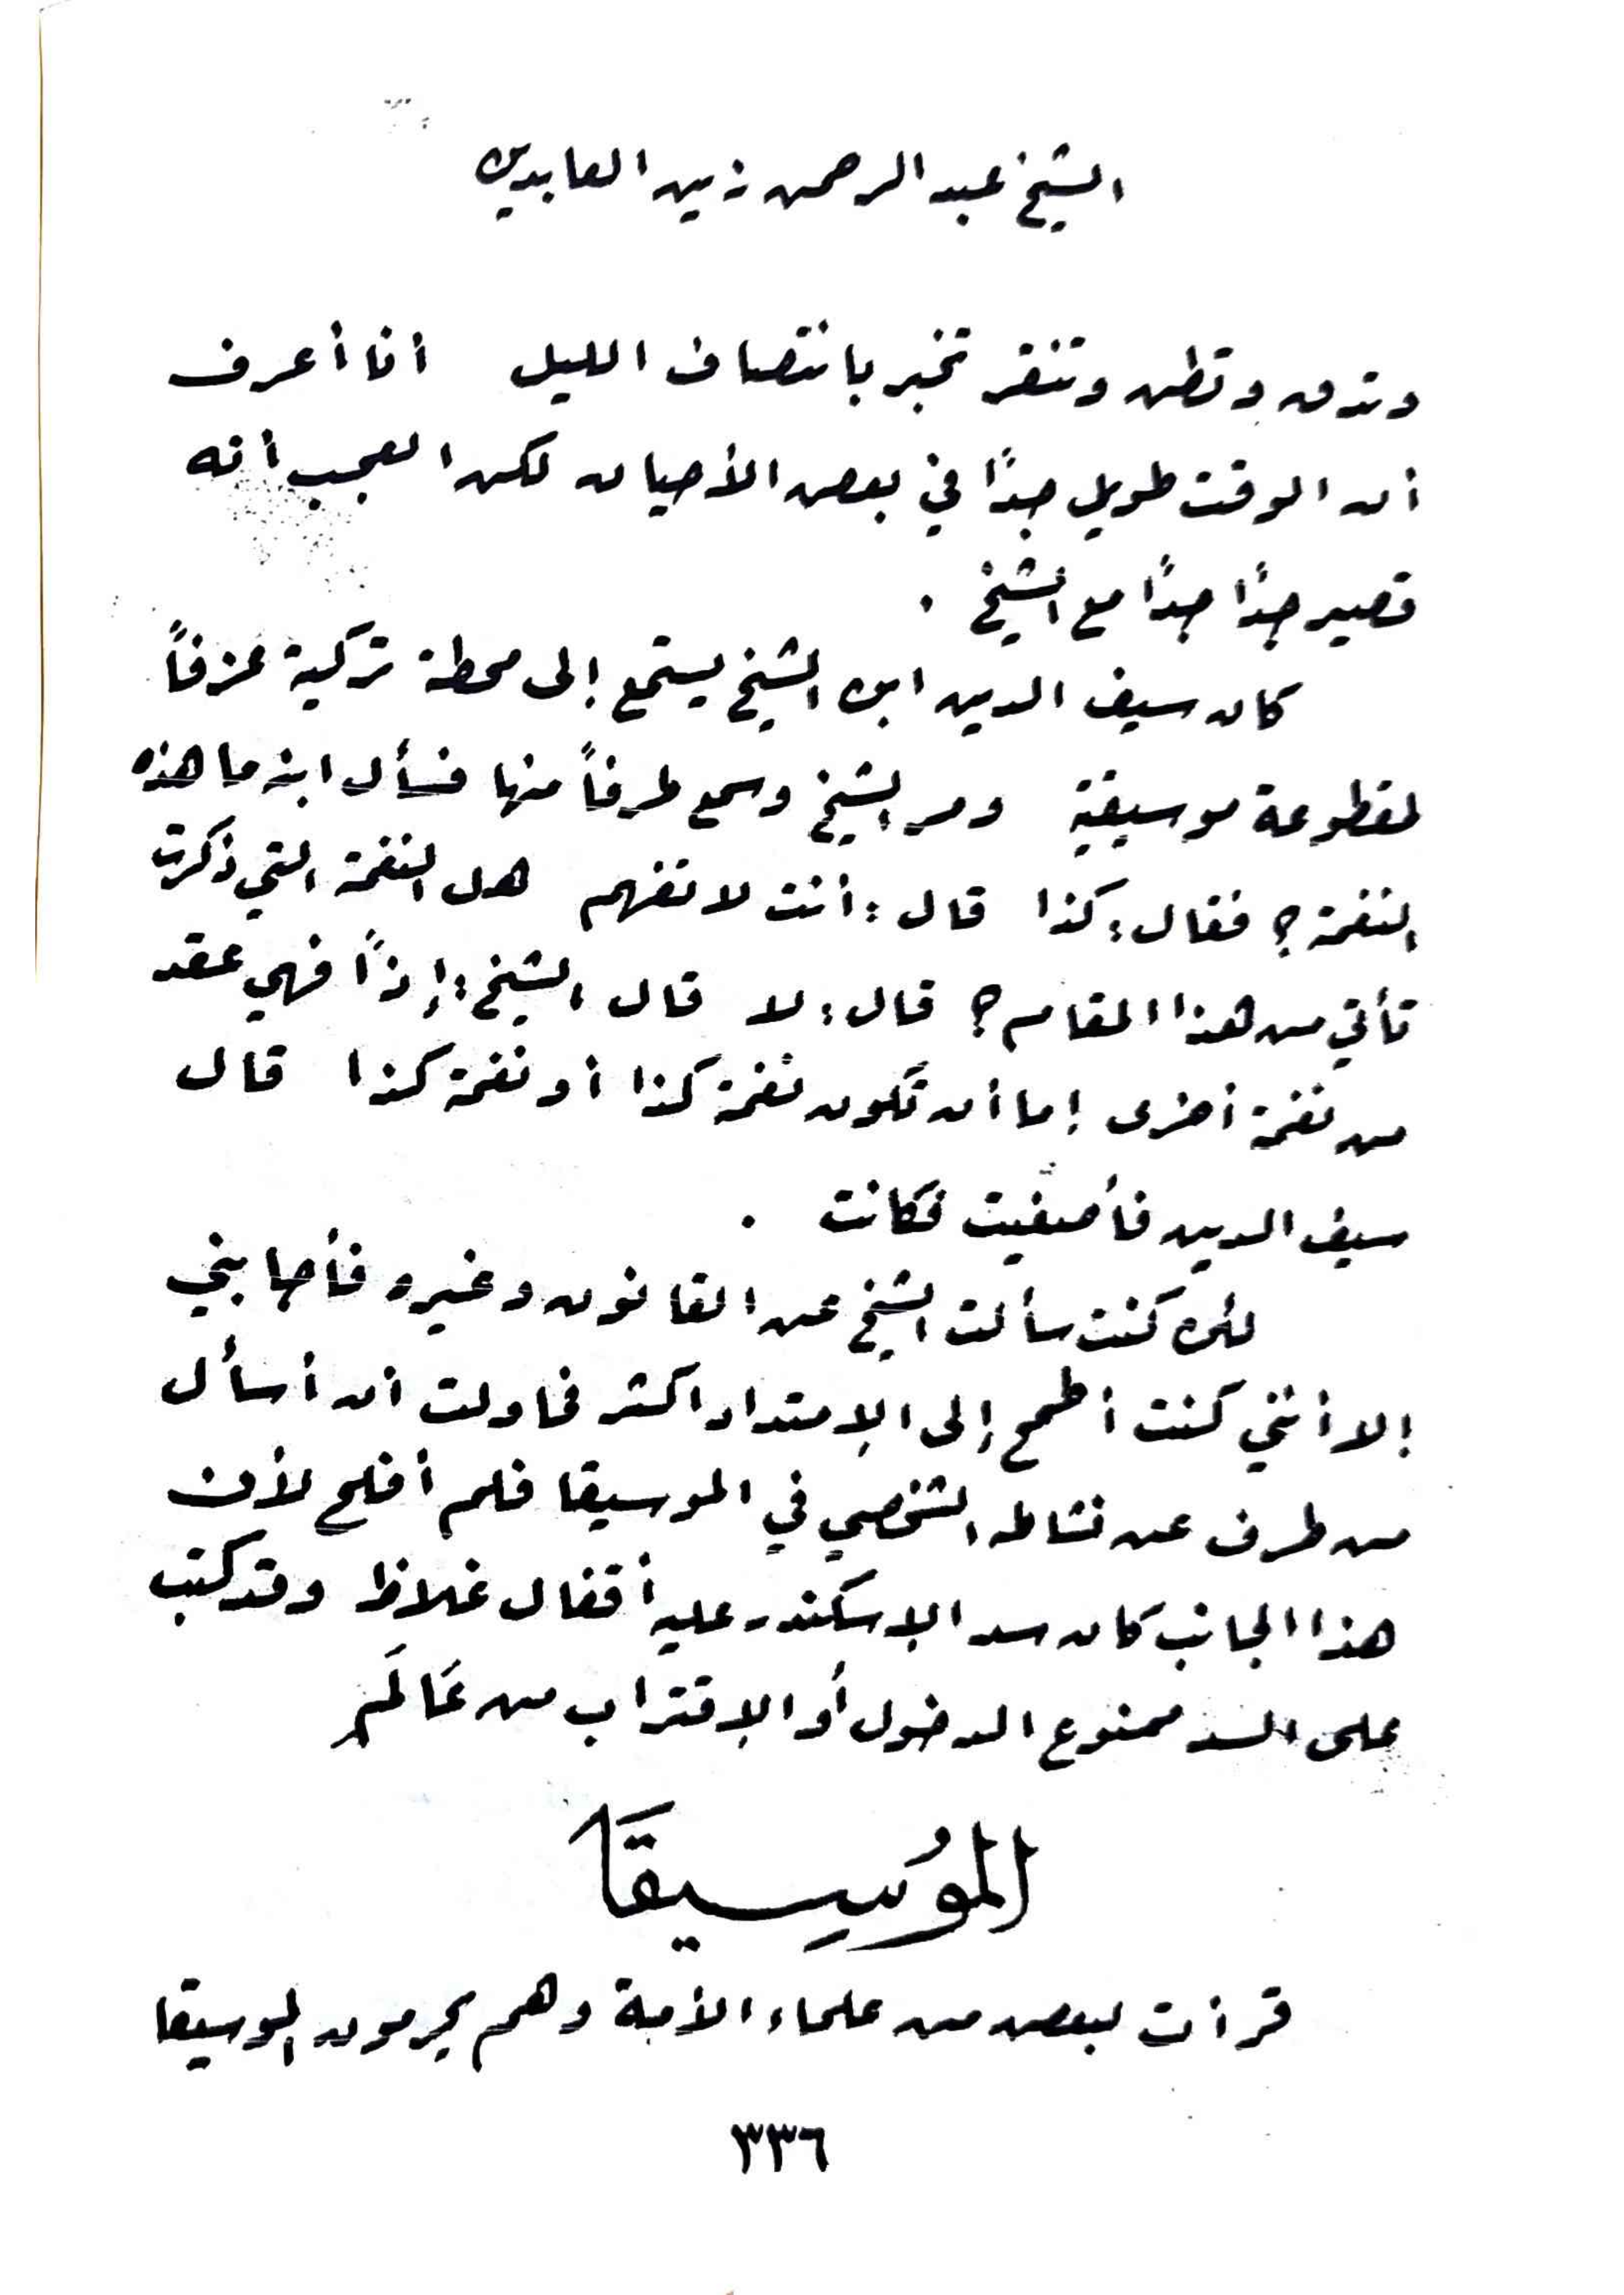 الشيخ عبد الرحمن زين العابدين
وتدق وتطن وتنقر تخبر بانتصاف الليل أنا أعرف
أن الوقت طويل جداً في بعض الأحيان لكن العجب أنه
قصير جداً جداً مع الشيخ .
كان سيف الدين ابن الشيخ يستمع إلى محطة تركية عزفاً
لمقطوعة موسيقية ومر الشيخ وسمع طرفاً منها فسأل ابنه ما هذه
النغمة ؟ فقال : كذا قال : أنت لا تفهم هل النغمة التي ذكرت
تأتي من هذا المقام ؟ قال : لا قال الشيخ : إذاً فهي عقد
من نغمة أخرى إما أن تكون نغمة كذا أو نغمة كذا قال
سيف الدين فأصغيت فكانت .
لئن كنت سألت الشيخ عن القانون وغيره فأجابني
إلا أنني كنت أطمح إلى الإمتداد اكثر فحاولت أن أسأل
من طرف عن نشاطه الشخصي في الموسيقا فلم أفلح لأن
هذا الجانب كان سد الاسكندر عليه أقفال غلاظ وقد كتب
على السد ممنوع الدخول أو الإقتراب من عَالَمِ
الموُسِيقَا
قرأت لبعض من علماء الأمة وهم يحرمون الموسيقا
٣٣٦